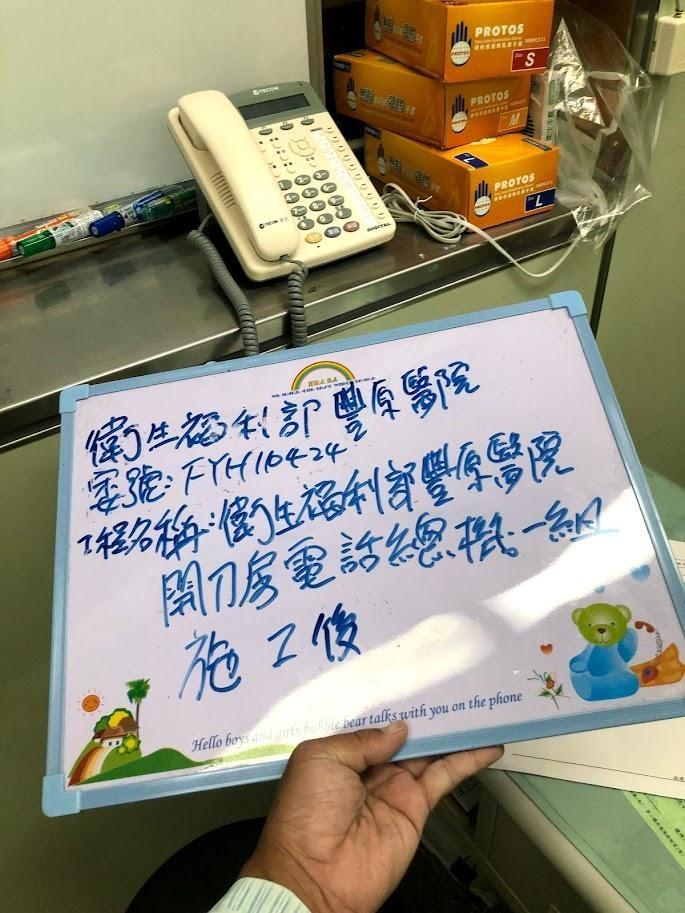 PROTOS
S
PROTOS
M
PROTOS
Size L
TECOM
TECOM
DIGITAL
衛生福利部豐原醫院
案號:FYH104-24
工程名稱:衛生福利部豐原醫院
開刀房電話總機一組
施工後
Hello boys and girls bubble bear talks with you on the phone